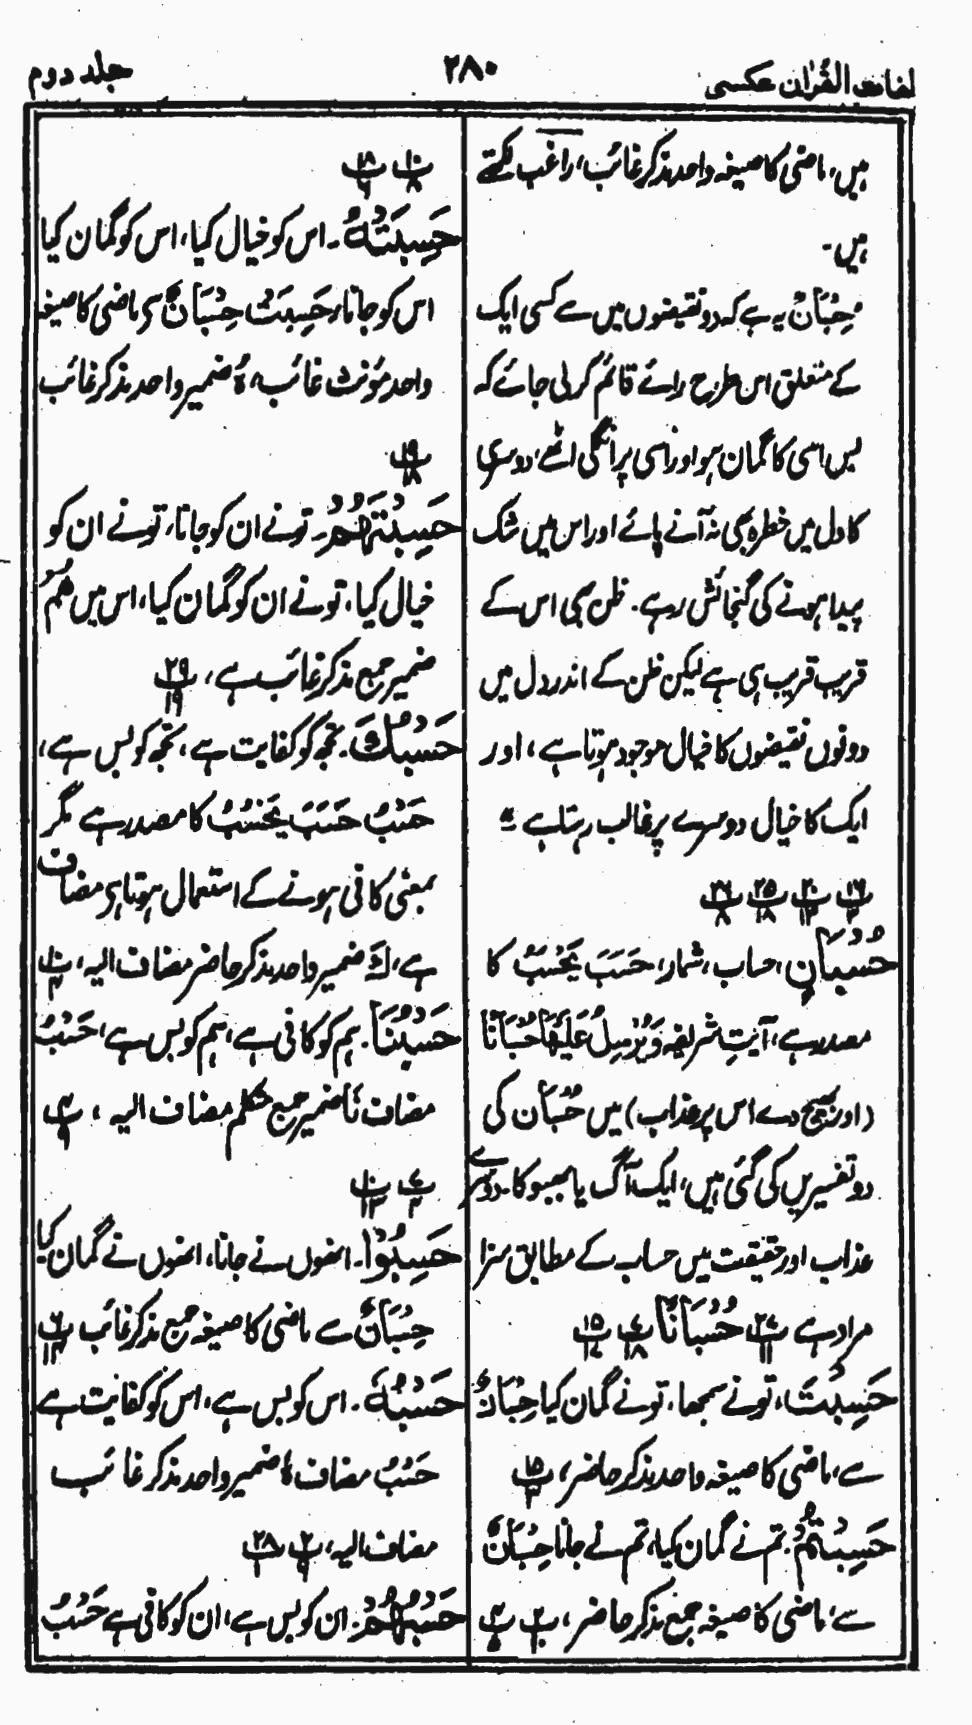 لغات القرآن عکسی
۲۸۰
جلد دوم
ہیں، ماضی کا صیغہ واحد مذکر غائب، راغب لکھتے
ہیں۔
حِسْبَانٌ یہ ہے کہ دو نقیضوں میں سے کسی ایک
کے متعلق اس طرح رائے قائم کر لی جائے کہ
بس اسی کا گمان ہو اور اسی پر انگلی اٹھے، دوسری
کا دل میں خطرہ بھی نہ آنے پائے اور اس میں شک
پیدا ہونے کی گنجائش رہے۔ ظن بھی اس کے
قریب قریب ہی ہے لیکن ظن کے اندر دل میں
دونوں نقیضوں کا خیال موجود ہوتا ہے، اور
ایک کا خیال دوسرے پر غالب رہتا ہے
حُسْبَانٍ، حساب، شمار، حَسَبَ یَحْسُبُ کا
مصدر ہے، آیتِ شریفہ وَیُرْسِلَ عَلَیْهَا حُسْبَانًا
(اور بھیج دے اس پر عذاب) میں حُسْبَان کی
دو تفسیریں کی گئی ہیں، ایک آگ یا بھبوکا۔ دوسرے
عذاب اور حقیقت میں حساب کے مطابق سزا
مراد ہے حُسْبَانًا
حَسِبْتَ، تو نے سمجھا، تو نے گمان کیا حِسْبَانٌ
سے، ماضی کا صیغہ واحد مذکر حاضر،
حَسِبْتُمْ۔ تم نے گمان کیا، تم نے جانا حِسْبَانٌ
سے، ماضی کا صیغہ جمع مذکر حاضر،
حَسِبَتْهُ۔ اس کو خیال کیا، اس کو گمان کیا
اس کو جانا، حَسِبَتْ حِسْبَانٌ سے ماضی کا صیغہ
واحد مؤنث غائب، هُ ضمیر واحد مذکر غائب
حَسِبْتَهُمْ۔ تو نے ان کو جانا، تو نے ان کو
خیال کیا، تو نے ان کو گمان کیا، اس میں هُمْ
ضمیر جمع مذکر غائب ہے،
حَسْبُكَ۔ تجھ کو کفایت ہے، تجھ کو بس ہے،
حَسْبُ حَسَبَ یَحْسُبُ کا مصدر ہے مگر
بمعنی کافی ہونے کے استعمال ہوتا ہے مضاف
ہے، كَ ضمیر واحد مذکر حاضر مضاف الیہ،
حَسْبُنَا۔ ہم کو کافی ہے، ہم کو بس ہے، حَسْبُ
مضاف نَا ضمیر جمع متکلم مضاف الیہ،
حَسِبُوْا۔ انھوں نے جانا، انھوں نے گمان کیا
حِسْبَانٌ سے ماضی کا صیغہ جمع مذکر غائب
حَسْبُهٗ۔ اس کو بس ہے، اس کو کفایت ہے
حَسْبُ مضاف هٗ ضمیر واحد مذکر غائب
مضاف الیہ،
حَسْبُهُمْ۔ ان کو بس ہے، ان کو کافی ہے حَسْبُ